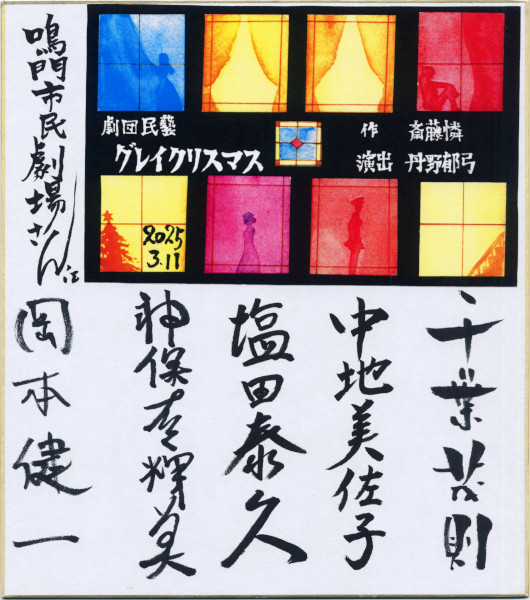 鳴門市民劇場さん江
劇団民藝
グレイクリスマス
作 斎藤憐
演出 丹野郁弓
2025
3.11
千葉茂則
中地美佐子
塩田泰久
神保有輝美
岡本健一